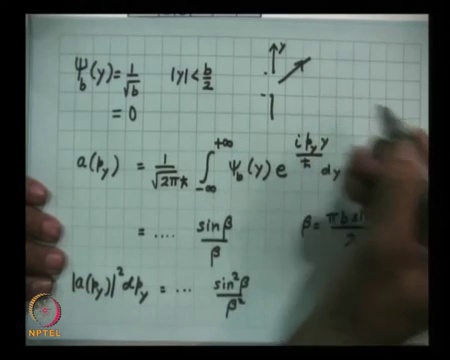 ψ_b(y) = 1/√b |y| < b/2
= 0
y
a(p_y) = 1/√(2πħ) ∫_{-∞}^{+∞} ψ_b(y) e^{i p_y y/ħ} dy
= .... sin β/β β = πb si
|a(p_y)|² dp_y = ... sin²β/β²
NPTEL